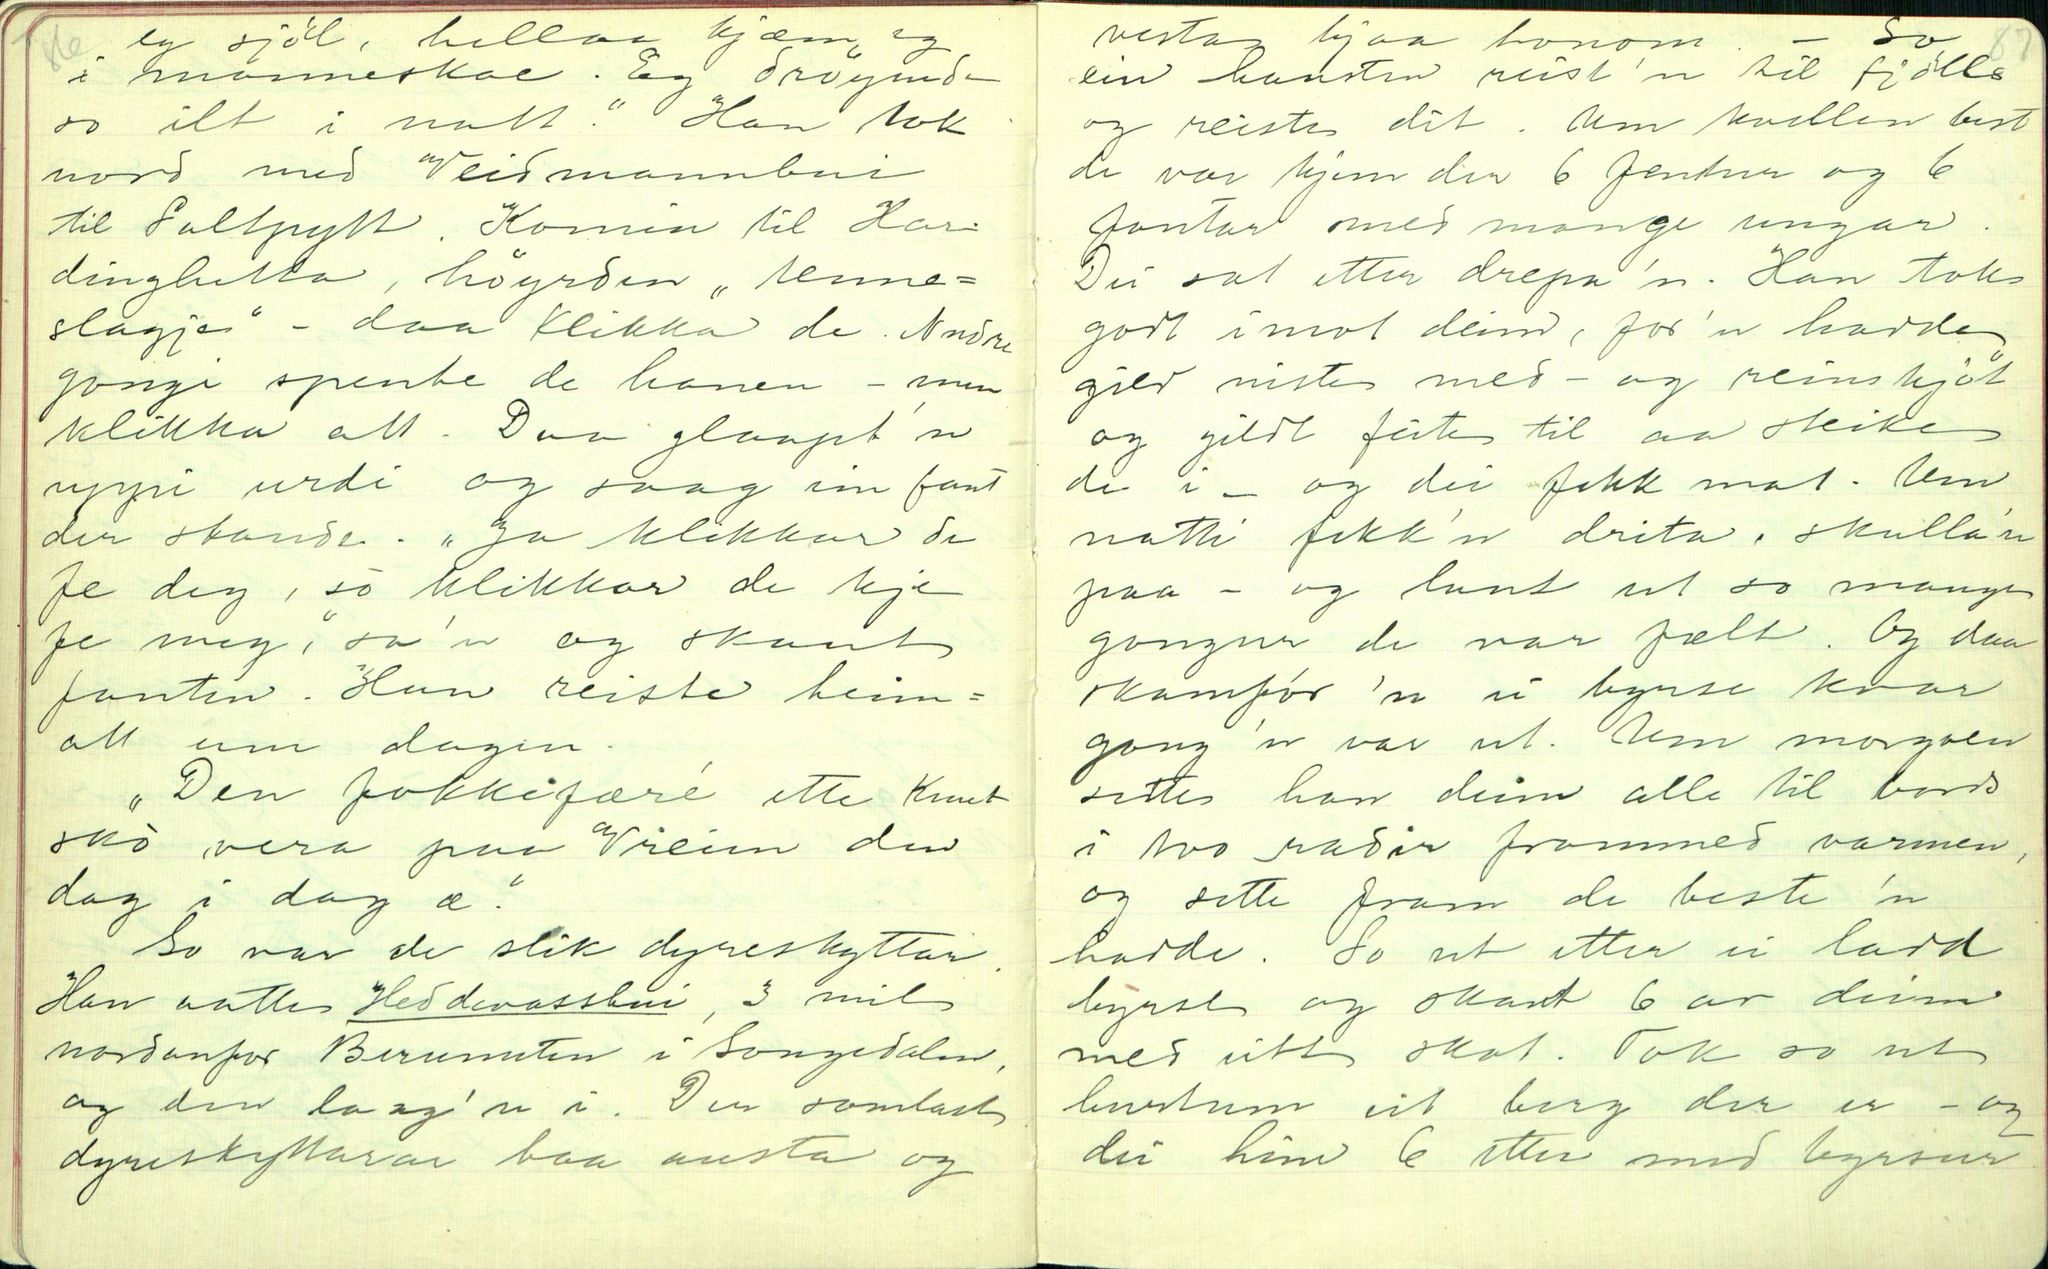 eg sjöl, hellaa kjæm eg
i manneskae. Eg dröymde
so ilt i natt." Han tok
nord med Veidmannbui
til Saltpytt. Komin til Har-
dinghetta, höyrden „tenne=
slagje" – daa klikka de. Andre
gongi spente de hanen – men
klikka att. Daa glaapt'n
uppi urdi og saag ein fant
der stande. „Ja klikkar de
fe deg, so klikkar de kje
fe meg," sa'n og skaut
fanten. Han reiste heim=
att um dagen.
„Den fokkifæré ette Knut
sko vera paa Vreim den
dag i dag æ."
So var de slik dyreskyttar.
Han aatte Heddevassbui, 3 mil
nordanfor Berunuten i Songedalen,
og den laag'n i. Der samlast
dyreskyttarae baa austa og
86
vesta hjaa honom. – So
87
ein hausten reist'n til fjölls
og reiste dit. Um kvellen best
de var kjem der 6 fentur og 6
fantar med mange ungar.
Dei sat etter drepa'n. Han tok
godt imot deim, for'n hadde
gild niste med – og reinskjöt
og gildt feite til aa steike
de i – og dei fekk mat. Um
natti fekk'n drita, skulla'n
paa – og laut ut so mange
gongur de var fælt. Og daa
skamfór'n ei byrse kvar
gong'n var ut. Um morgoen
sette han deim alle til bords
i tvo radir frammed varmen,
og sette fram de beste'n
hadde. So ut etter ei ladd
byrse og skaut 6 av deim
med eitt skot. Tok so ut
burtum eit berg der er – og
dei hine 6 etter med byrsur